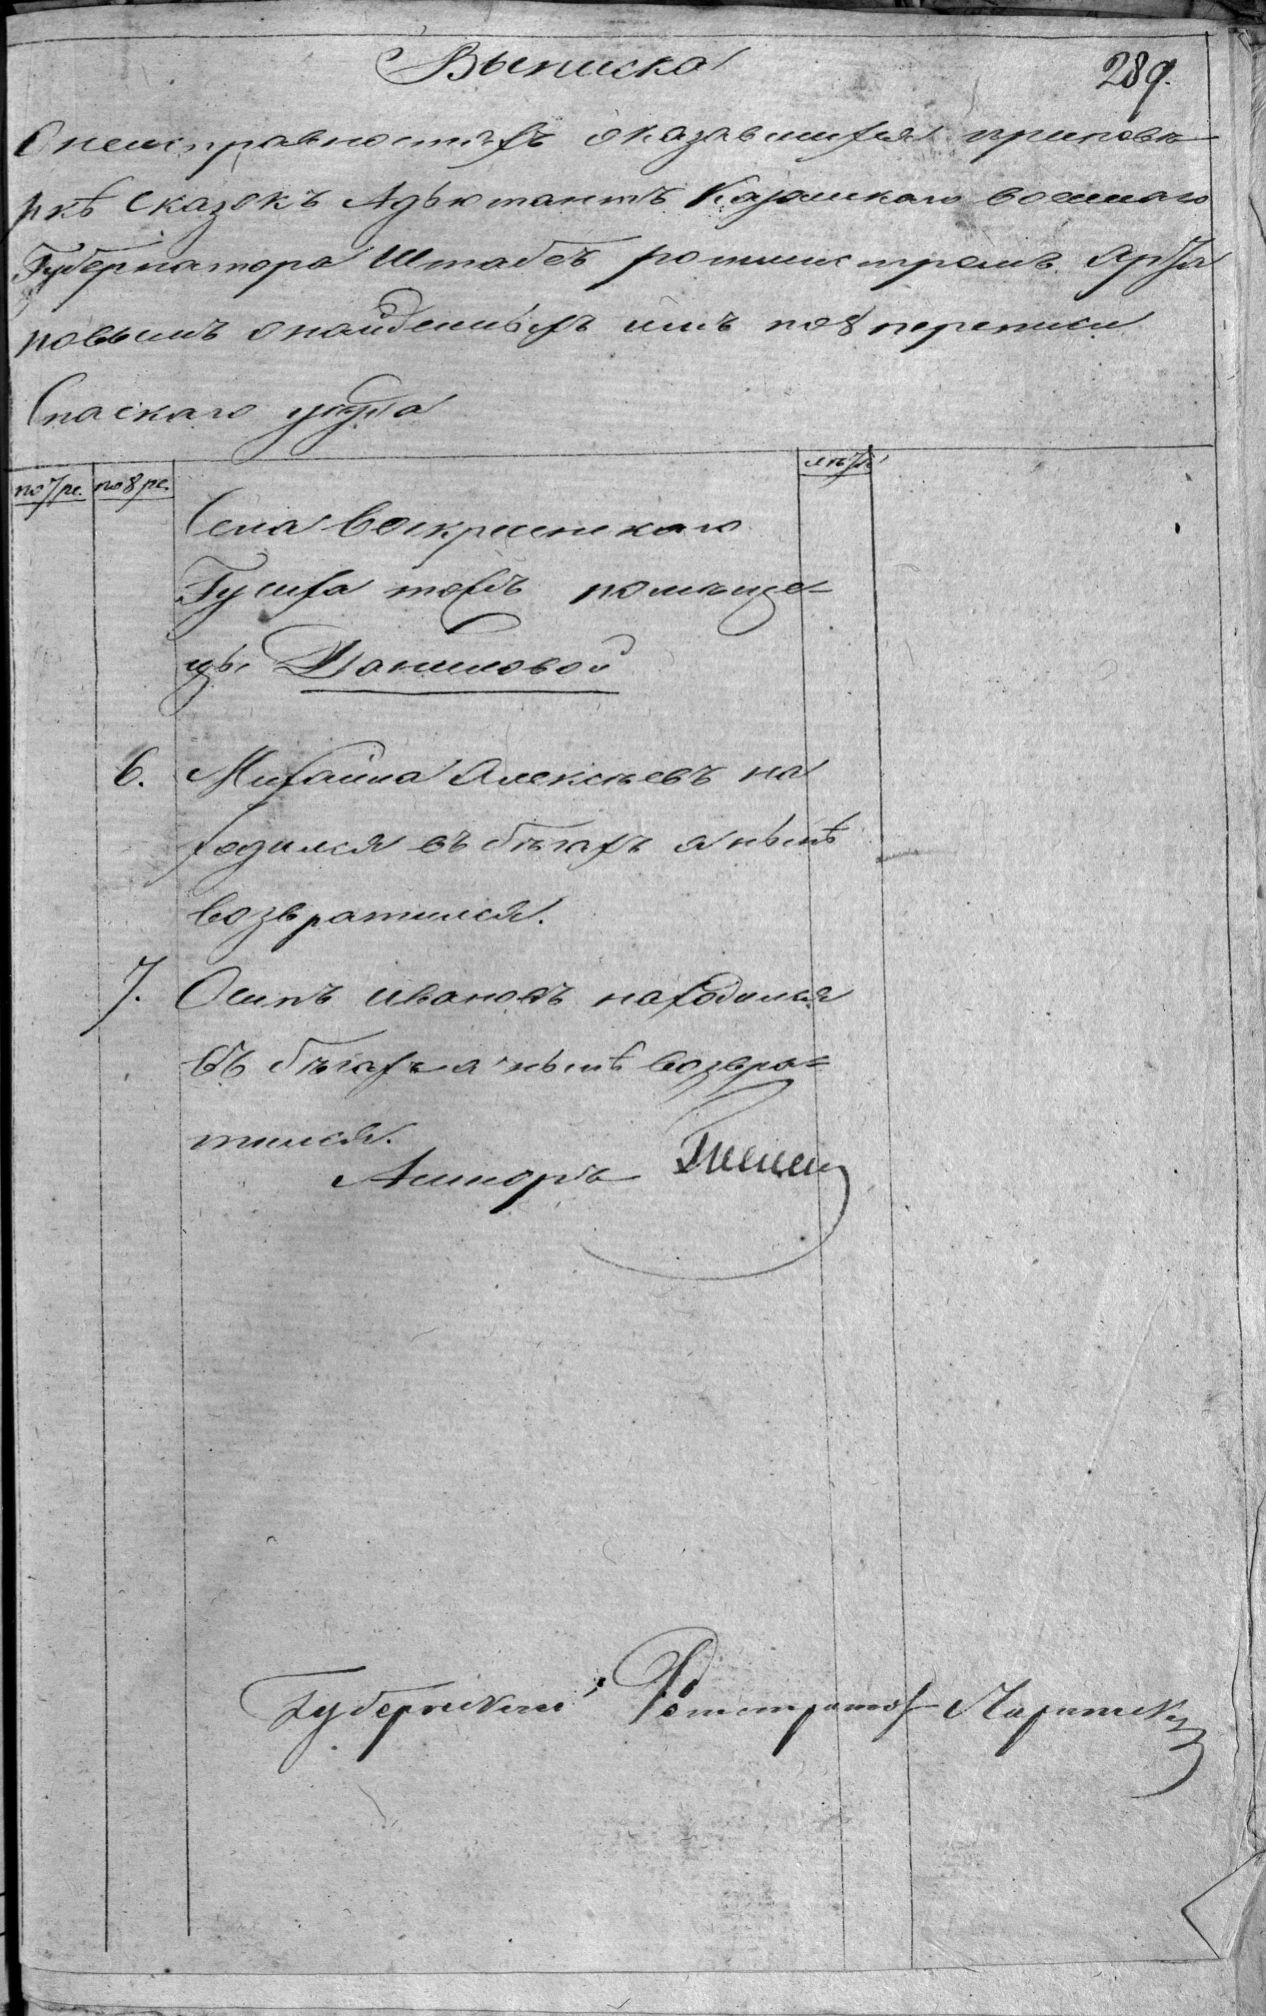 Выписка
289.
О неисправностяхъ оказавшихся приповѣ
ркѣ сказокъ Адъютантъ Казанскаго военнаго
Губернатора Штабсъ ротмистромъ
новымъ онайденныхъ имъ по 8 переписи
Спаскаго уѣзда
по 7 ре. по 8 ре. лѣта
Села Воскресенскаго
Гусиха тожъ помѣще-
цы Даниловой
6. Михайла Алексѣевъ на
ходился въ бѣгахъ а нынѣ
возвратился.
7. Осипъ Ивановъ находился
въ бѣгахъ а нынѣ возвра=
тился.
Губернскій Регистраторъ